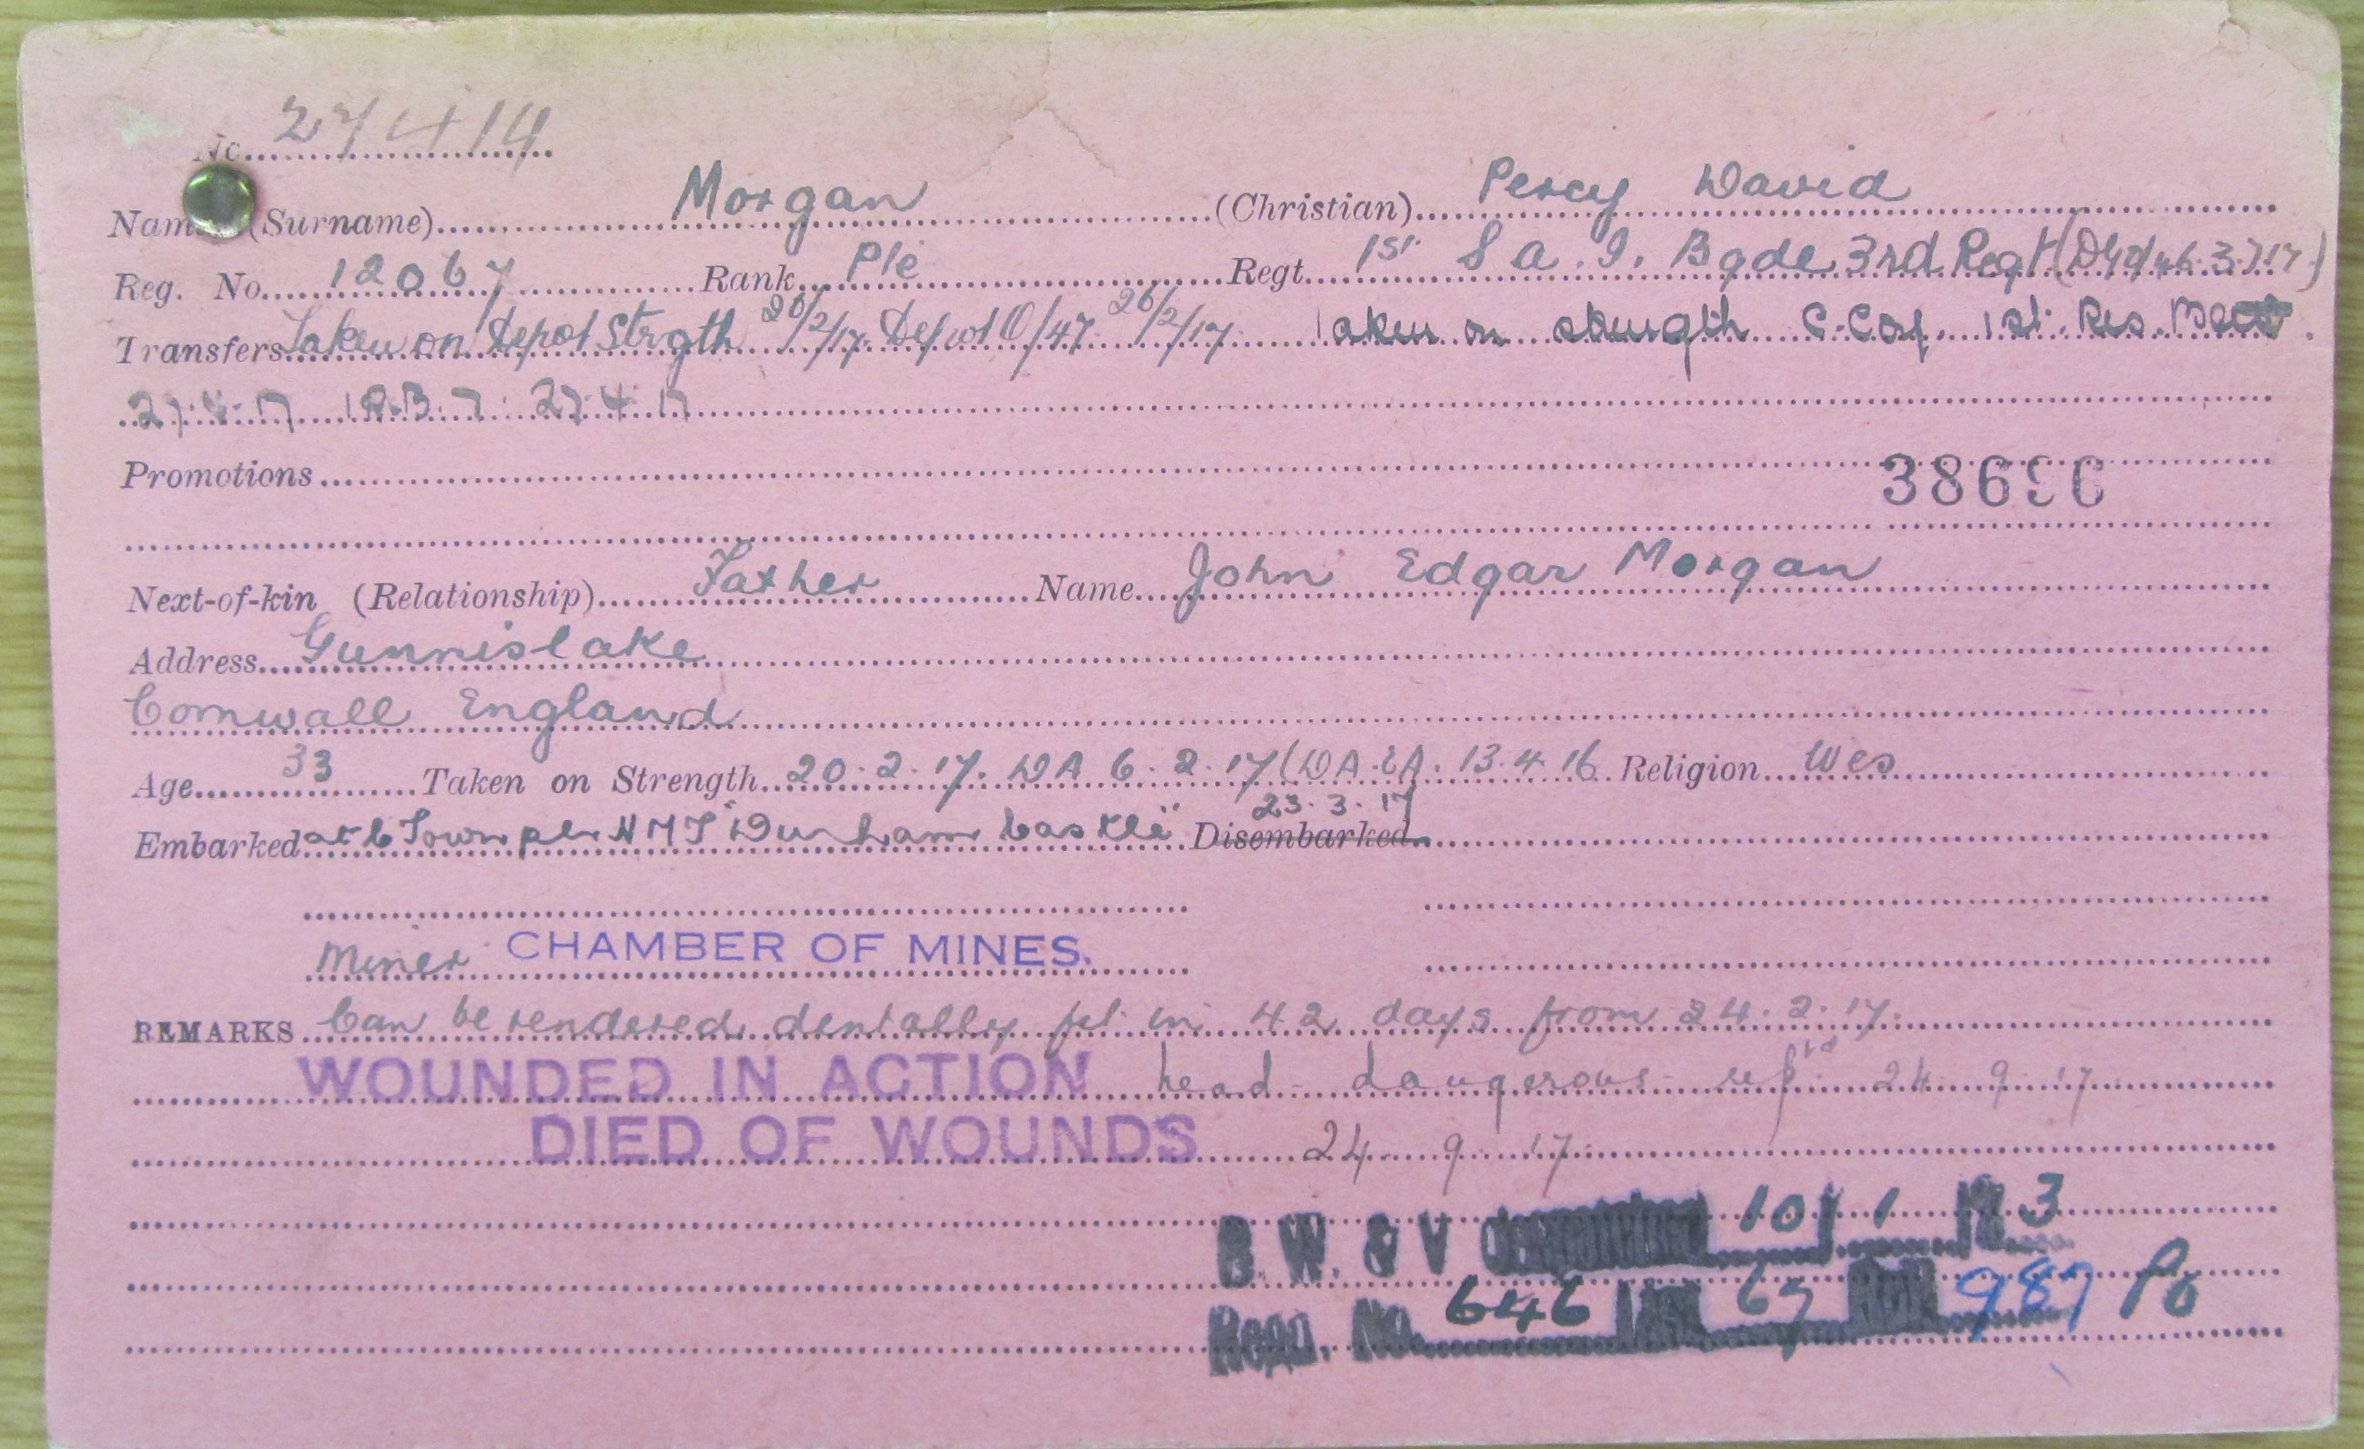 No. 27414
Name (Surname) Morgan (Christian) Percy David
Reg. No. 12067 Rank Pte Regt. 1st S A. I. Bgde 3rd Regt
Transfers Taken on Depot Strgth 20/2/17. Depot O/47 26/2/17 Taken on strength C. Coy. 1st. Res. Batt.
27.4.17
Promotions 38690
Next-of-kin (Relationship) Father Name John Edgar Morgan
Address Gunnislake
Cornwall England
Age 33 Taken on Strength 20.2.17. DA 6.2.17 (DA.EA. 13.4.16 Religion Wes
23.3.17
Embarked at C Town per HMT "Durham Castle" Disembarked
Miner CHAMBER OF MINES.
REMARKS Can be rendered dentally fit in 42 days from 24.2.17.
WOUNDED IN ACTION head dangerous repd 24 9 17
DIED OF WOUNDS 24 9 17
B. W. & V 10 1 3
Reqn. No. 646 67 Roll 987